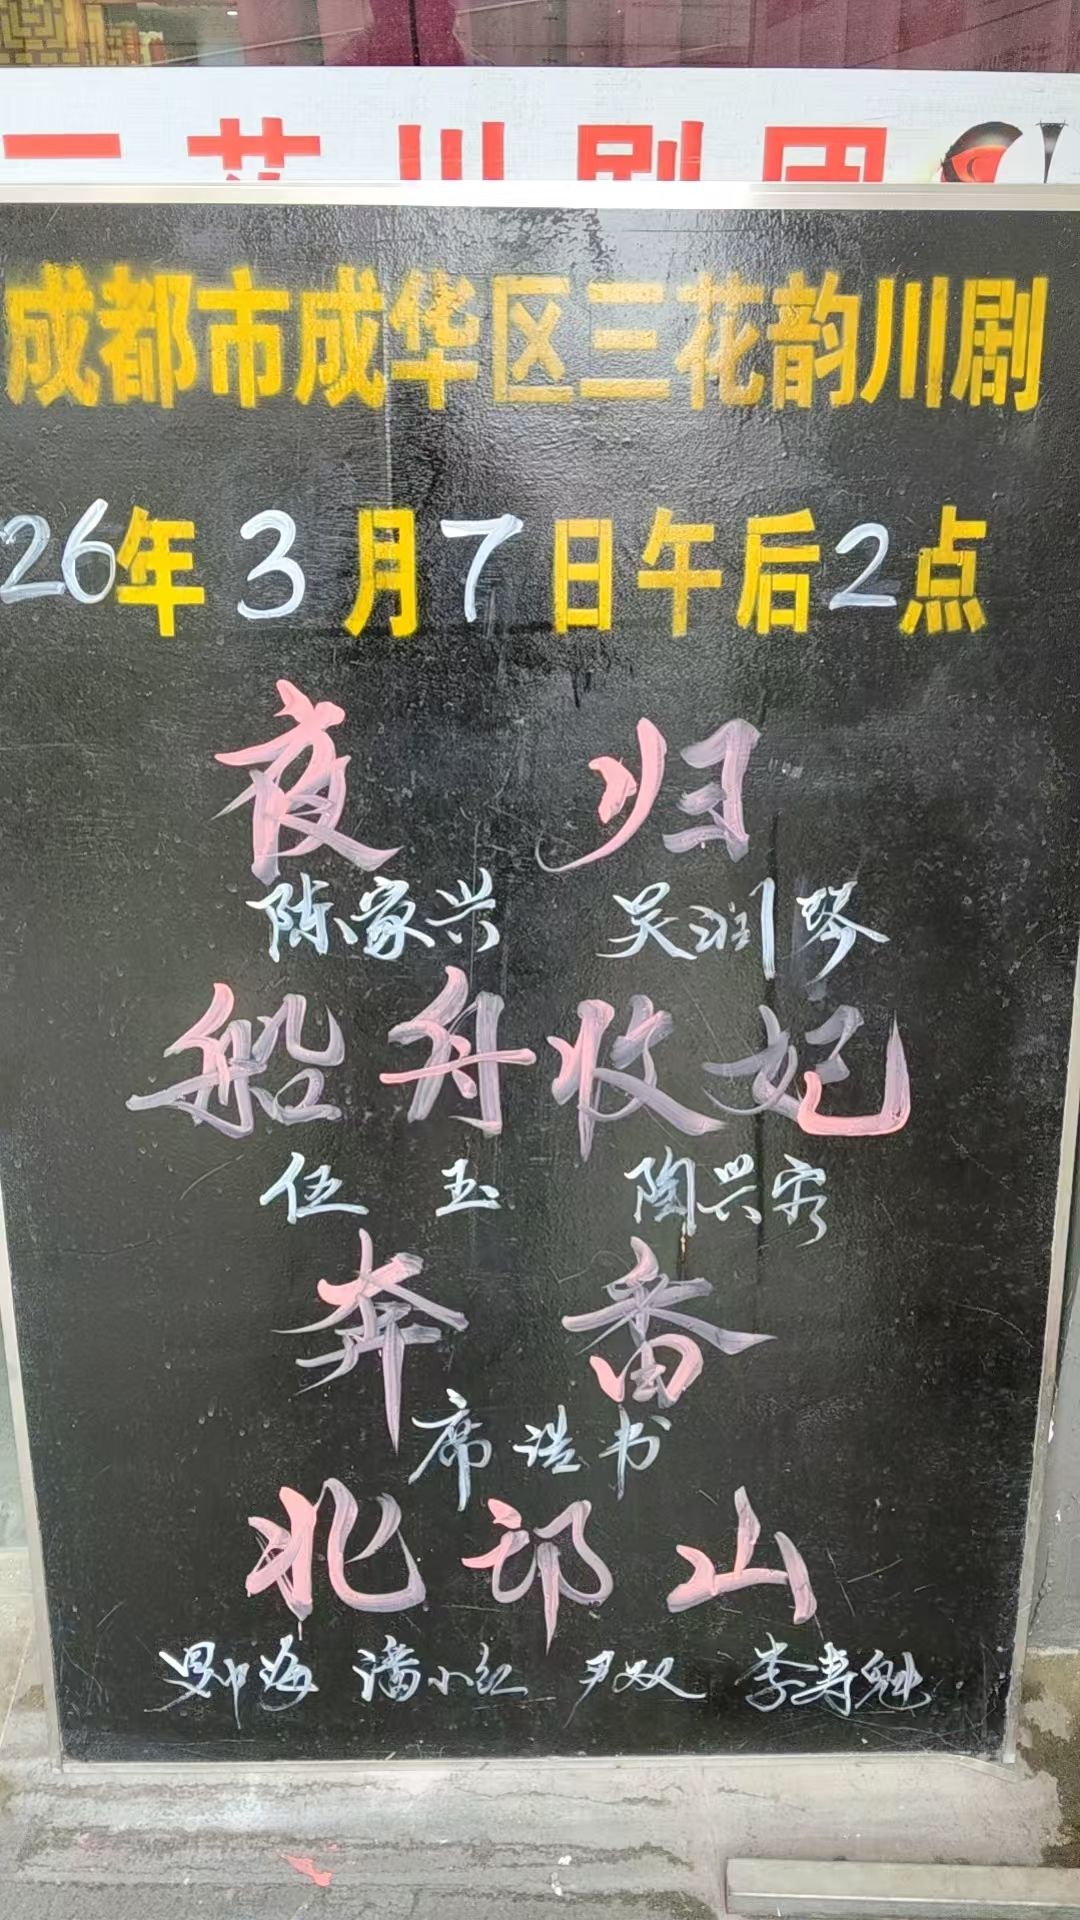 三花川剧团
成都市成华区三花韵川剧
26年3月7日午后2点
夜归
陈家兴 吴润琴
船舟收妃
伍玉 陶兴容
奔番
席浩书
北邙山
海 潘小红 尹双 李寿魁